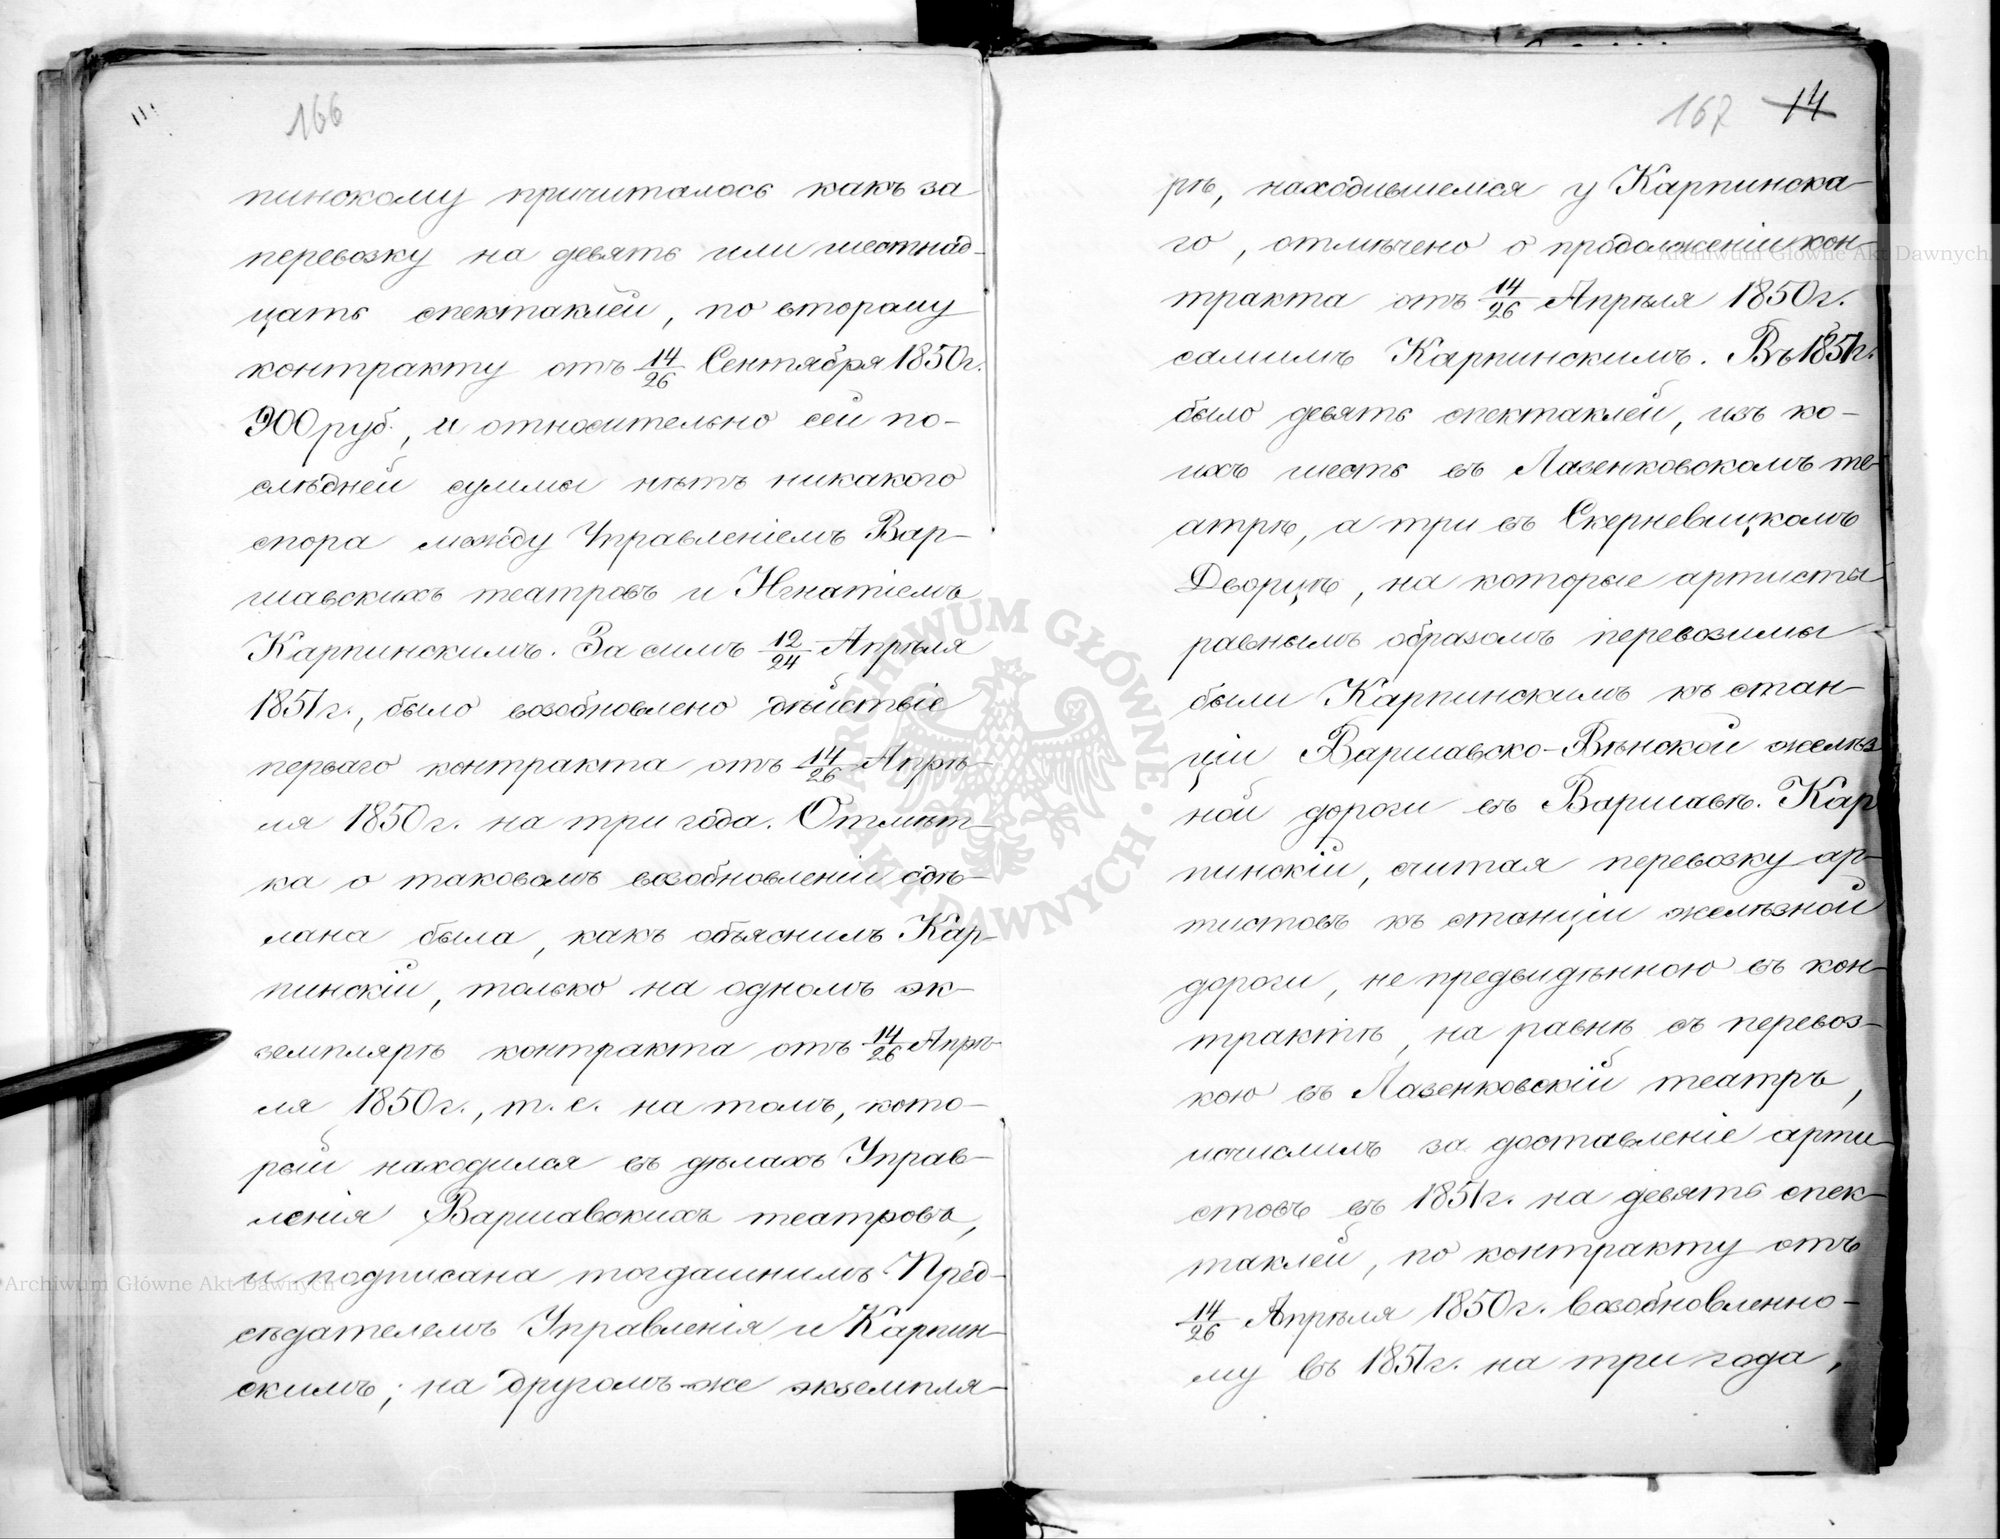 166
пинскому причиталось какъ за
перевозку на девять или шестнад-
цать спектаклей, по второму
контракту отъ 14/26 Сентября 1850 г.
900 руб., и относительно сей по-
слѣдней суммы нѣтъ никакого
спора между Управленіемъ Вар-
шавскихъ театровъ и Игнатіемъ
Карпинскимъ. За симъ 12/24 Апрѣля
1851 г., было возобновлено дѣйствіе
перваго контракта отъ 14/26 Апрѣ-
ля 1850 г. на три года. Отмѣт-
ка о таковомъ возобновленіи сдѣ-
лана была, какъ объяснилъ Кар-
пинскій, только на одномъ эк-
земплярѣ контракта отъ 14/26 Апрѣ-
ля 1850 г., т. е. на томъ, кото-
рый находился въ дѣлахъ Управ-
ленія Варшавскихъ театровъ,
и подписана тогдашнимъ Пред-
сѣдателемъ Управленія и Карпин-
скимъ; на другомъ же экземпля-
167 14
рѣ, находившемся у Карпинска-
го, отмѣчено о продолженіи кон-
тракта отъ 14/26 Апрѣля 1850 г.
самимъ Карпинскимъ. Въ 1851 г.
было девять спектаклей, изъ ко-
ихъ шесть въ Лазенковскомъ те-
атрѣ, а три въ Скерневицкомъ
Дворцѣ, на которые артисты
равнымъ образомъ перевозимы
были Карпинскимъ къ стан-
ціи Варшавско-Вѣнской желѣз
ной дороги въ Варшавѣ. Кар
пинскій, считая перевозку ар-
тистовъ къ станціи желѣзной
дороги, не предвидѣнною въ кон-
трактѣ, на равнѣ съ перевоз-
кою въ Лазенковскій театръ,
исчислилъ за доставленіе арти-
стовъ въ 1851 г. на девять спек-
таклей, по контракту отъ
14/26 Апрѣля 1850 г. возобновленно-
му въ 1851 г. на три года,
ARCHIWUM GŁÓWNE AKT DAWNYCH
Archiwum Główne Akt Dawnych
Archiwum Główne Akt Dawnych